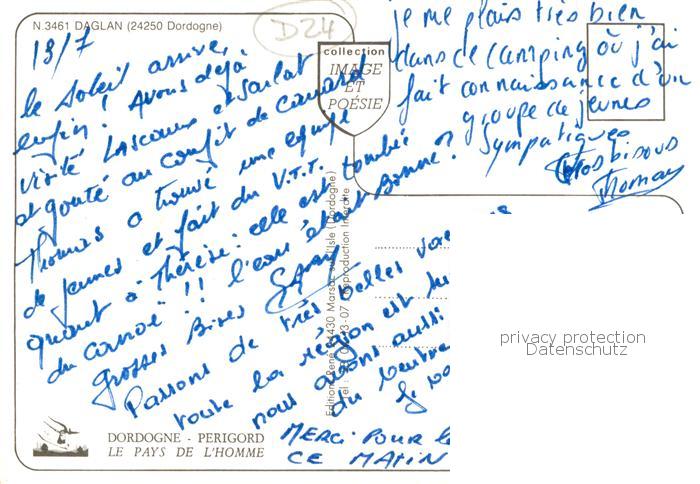 N.3461 DAGLAN (24250 Dordogne)
D24
collection
IMAGE
ET
POÉSIE
13/7
le soleil arrive,
enfin! Avons déjà
visité Lascaux et Sarlat
et goûté au confit de canard
Thomas a trouvé une équipe
de jeunes et fait du V.T.T.
quant à Thérèse: elle est tombée
du canoé!! l'eau était bonne?
grosses Bises
Passons de très belles
toute la région est
nous avons aussi
du
je me plais très bien
dans ce camping où j'ai
fait connaissance d'un
groupe de jeunes
sympatiques
Gros bisous
Thomas
MERCI POUR
CE MATIN
DORDOGNE - PERIGORD
LE PAYS DE L'HOMME
privacy protection
Datenschutz